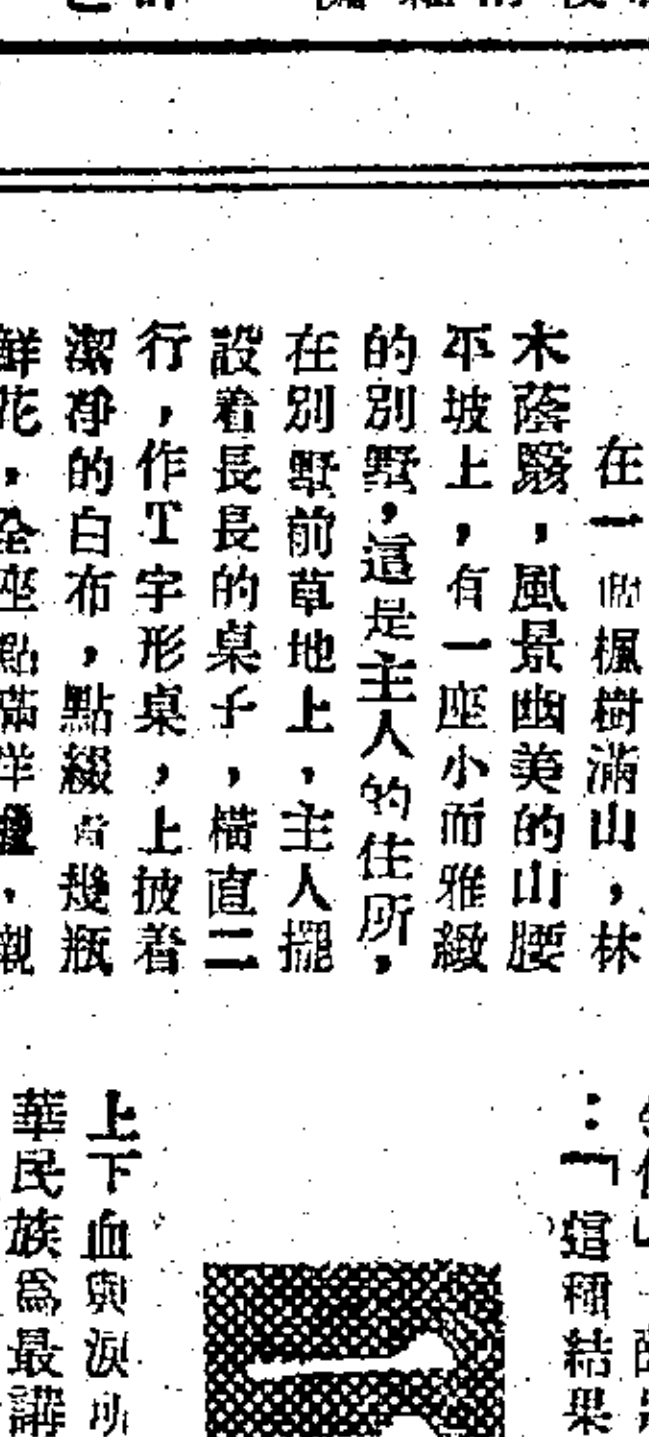 在一個楓樹滿山，林
木蔭翳，風景幽美的山腰
平坡上，有一座小而雅緻
的別墅，這是主人的住所，
在別墅前草地上，主人擺
設着長長的桌子，橫直二
行，作T字形桌，上披着
潔凈的白布，點綴着幾瓶
鮮花，全座點滿洋
：「這種結果
上下血與淚所
華民族爲最講